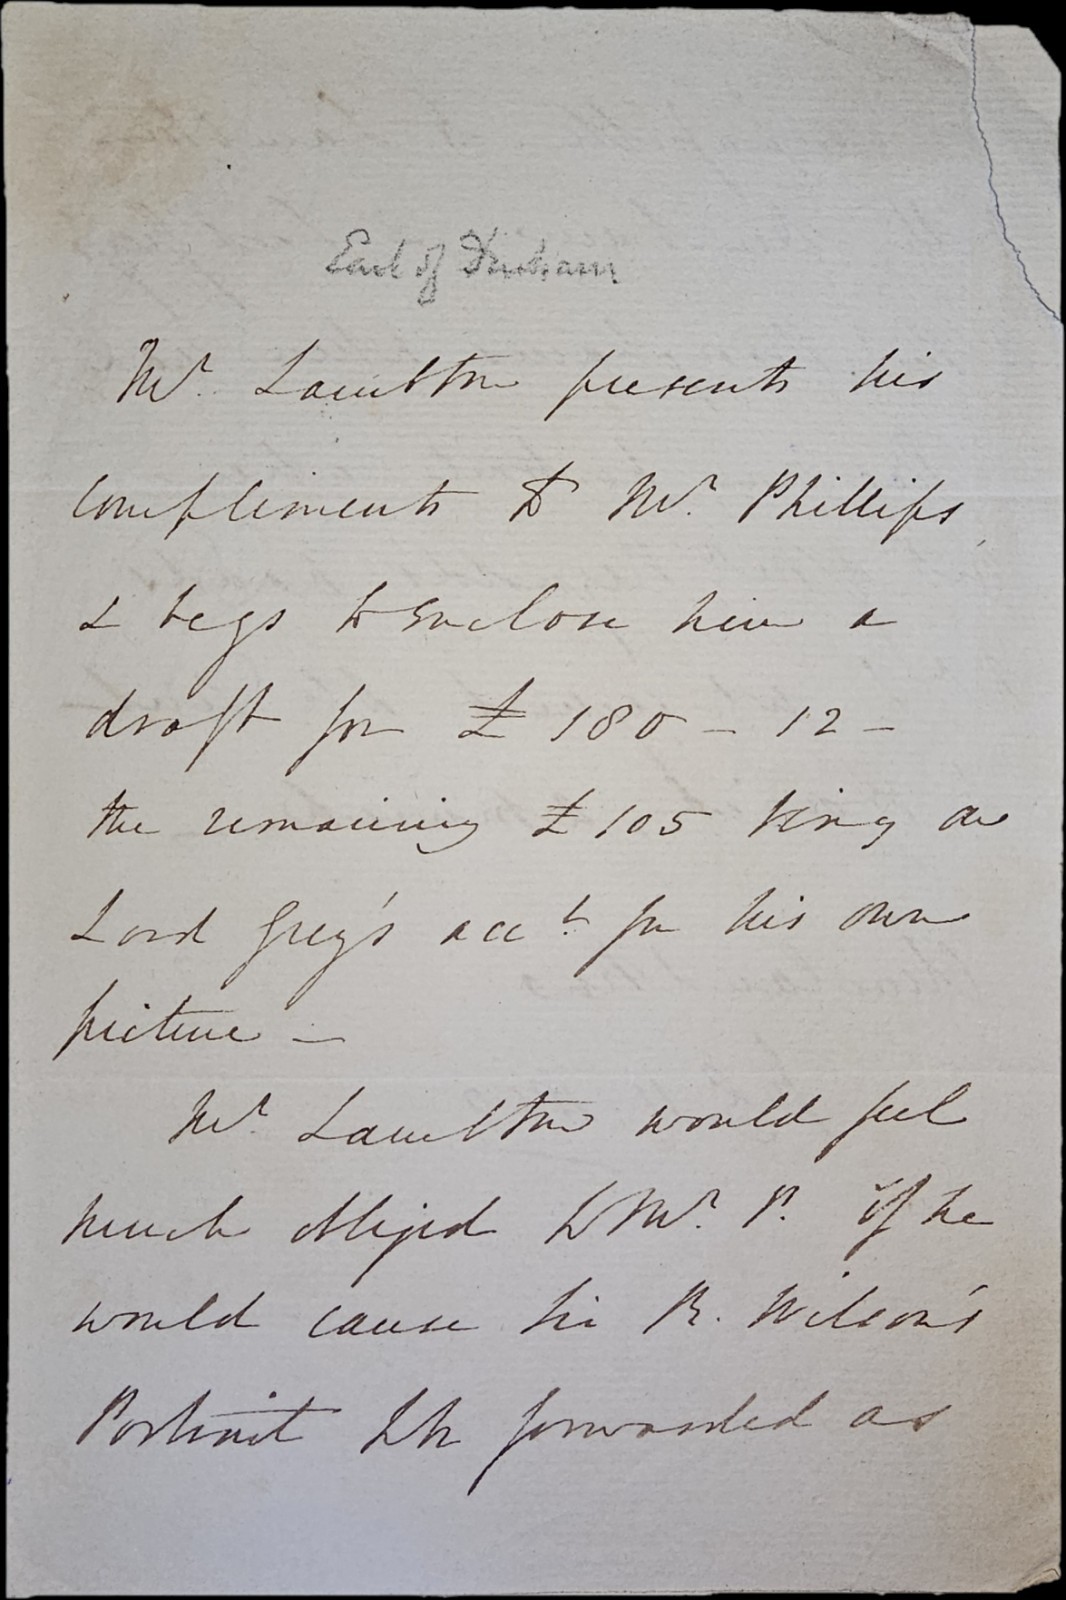 Earl of Durham
Mr. Lambton presents his
compliments to Mr. Phillips
& begs to enclose him a
draft for £ 180 - 12 -
the remaining £ 105 being on
Lord Grey's acct. for his own
picture -
Mr. Lambton would feel
much obliged to Mr. P. if he
would cause Sir R. Wilson's
Portrait to be forwarded as